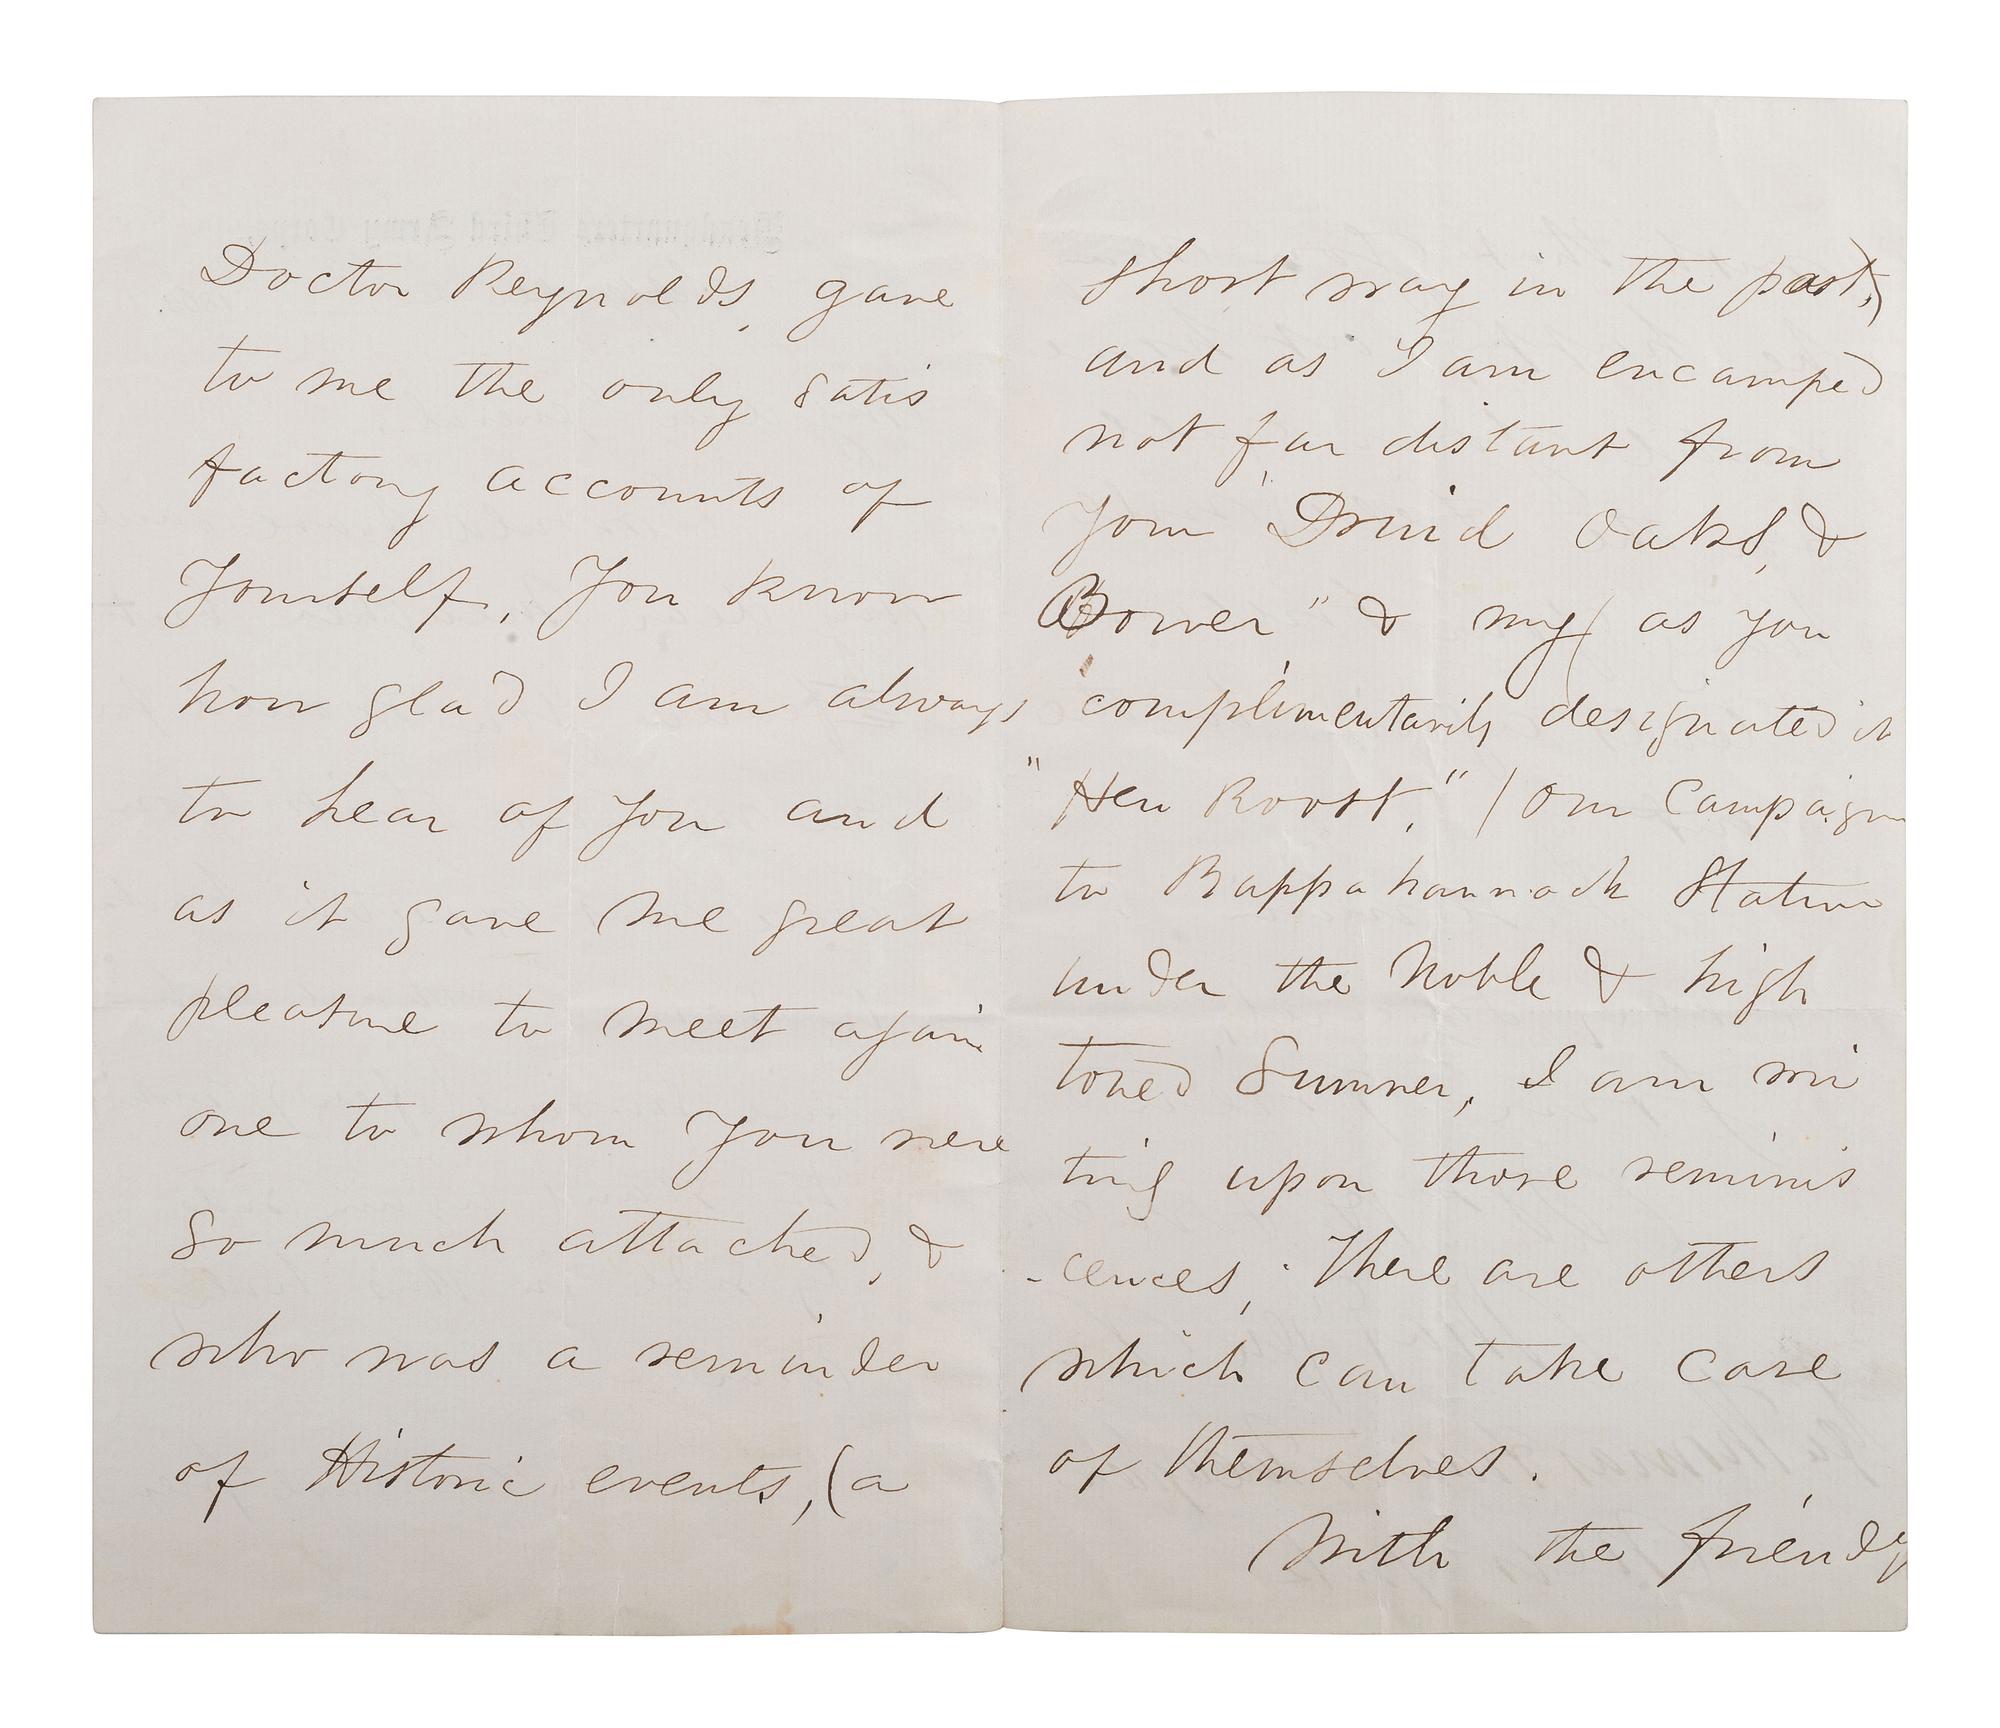 Doctor Reynolds, gave
to me the only satis
factory accounts of
yourself, you know
how glad I am always
to hear of you and
as it gave me great
pleasure to meet again
one to whom you were
so much attached, &
who was a reminder
of Historic events, (a
short way in the past,)
and as I am encamped
not far distant from
your "Druid Oaks, &
Bower" & my (as you
complimentarily designated it
"Hen Roost." / Our Campaign
to Rappahannock Station
under the Noble & high
toned Sumner, I am wri
ting upon those reminis
-cences, . There are others
which can take care
of themselves.
With the friendly